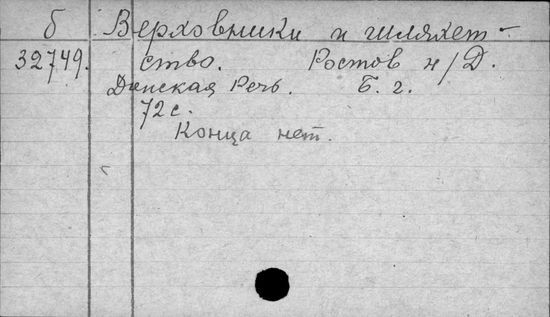 б Верховники и шляхет-
32749. ство. Ростов н/Д.
Донская Речь. Б. г.
72 с.
Конца нет.